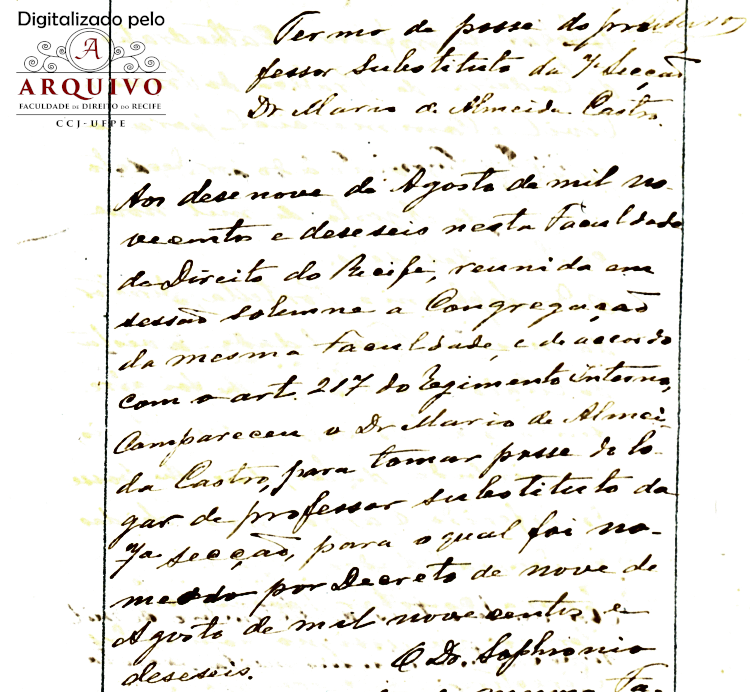 Digitalizado pelo
A
ARQUIVO
FACULDADE DE DIREITO DO RECIFE
CCJ-UFPE
Termo de posse do pro
fessor substituto da 7ª Secção
Dr Mario de Almeida Castro.
Aos desenove de Agosto de mil no-
vecentos e deseseis nesta Faculdade
de Direito do Recife, reunida em
sessão solemne a Congregação
da mesma Faculdade, e de accordo
com o art. 217 do Regimento Interno,
Compareceu o Dr Mario de Almei-
da Castro, para tomar posse do lo-
gar de professor substituto da
7a secção, para o qual foi no-
meado por Decreto de nove de
Agosto de mil novecentos e
deseseis. O Dr. Sophronio